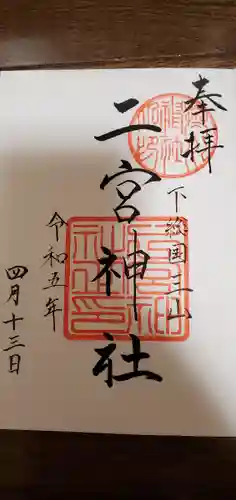 奉拝
下総国三山
二宮神社
令和五年
四月十三日